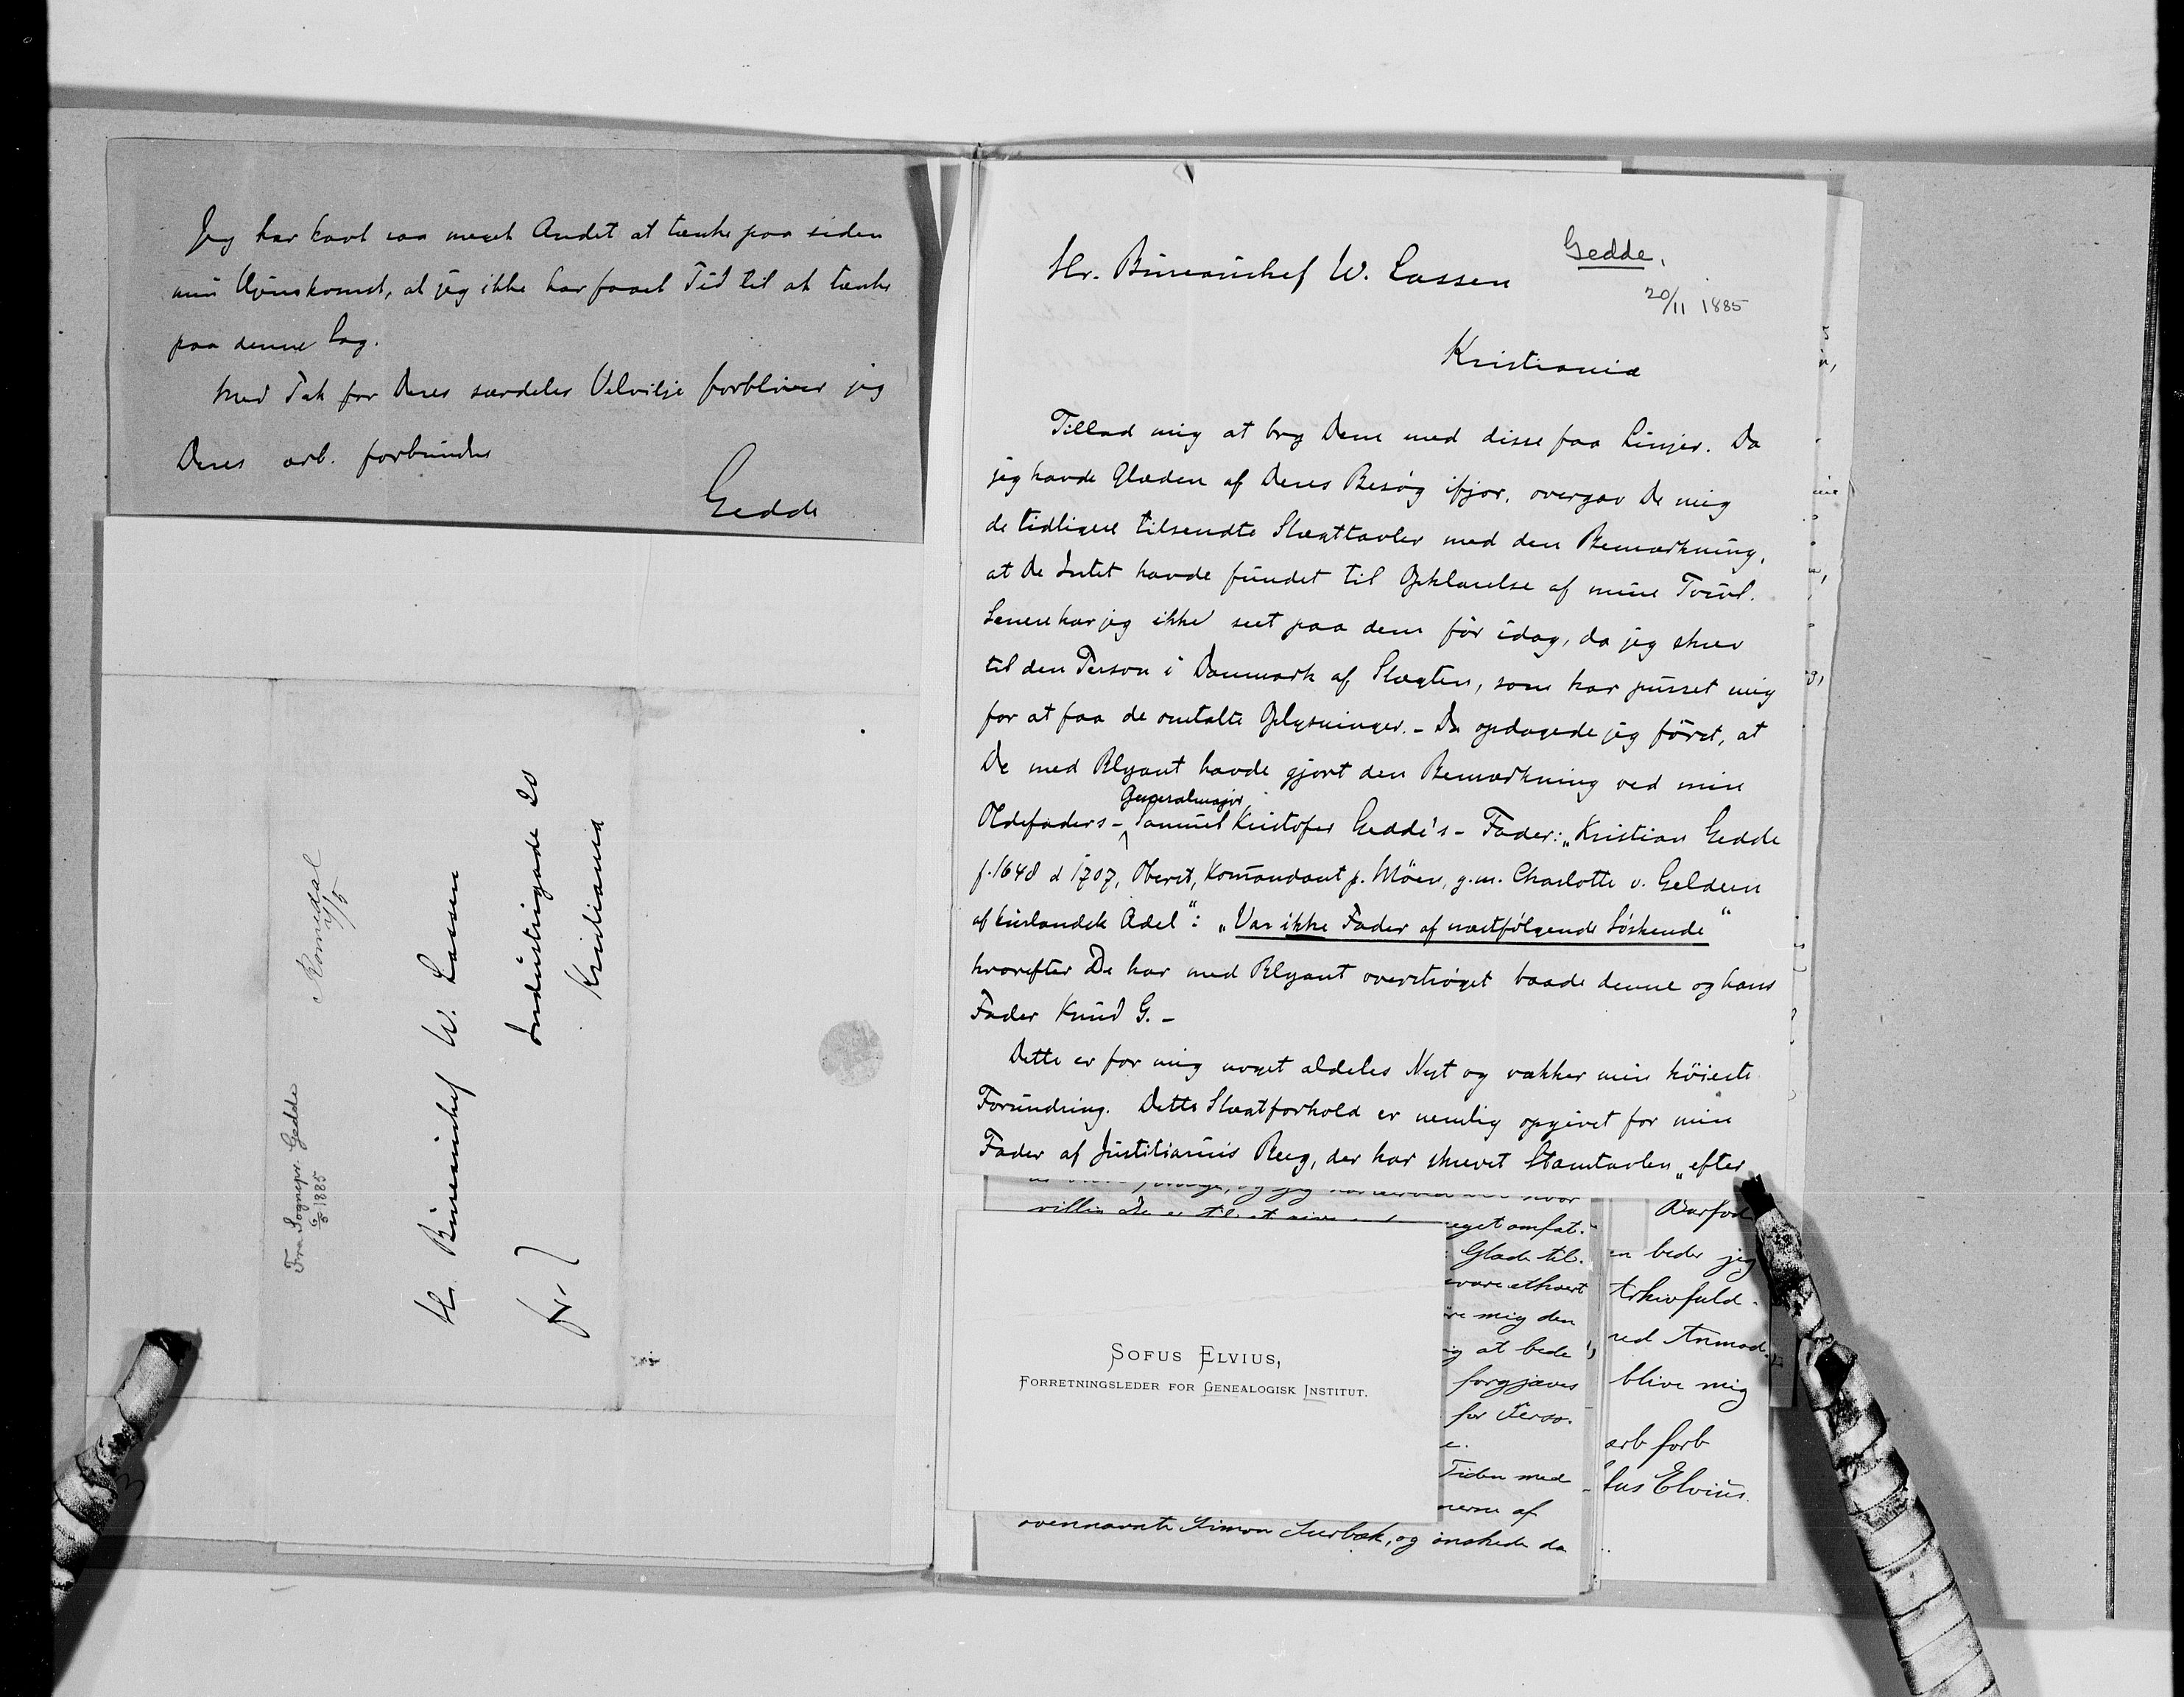 Jeg har havt saa meget Andet at tænke paa siden
min Hjemkomst, at jeg ikke har faaet Tid til at tænke
paa denne Sag.
Med Tak for Deres særdeles Velvilje forbliver jeg
Deres ærb. forbundne
Gedde
Romedal
4/5
Fra Sognepr. Gedde
6/5 1885
Hr. Büreauchef W. Lassen
Industrigade 20
Kristiania
fr.
Hr. Büreauchef W. Lassen
Gedde.
20/11 1885
Kristiania
Tillad mig at bry Dem med disse faa Linjer. Da
jeg havde Glæden af Deres Besøg ifjor, overgav De mig
de tidligere tilsendte Slægttavler med den Bemærkning,
at De Intet havde fundet til Opklarelse af mine Tvivl.
Senere har jeg ikke seet paa dem før idag, da jeg skrev
til den Person i Danmark af Slægten, som har purret mig
for at faa de omtalte Oplysninger. – Da opdagede jeg først, at
De med Blyant havde gjort den Bemærkning ved min
Oldefaders – Generalmajor Samuel Kristofer Gedde's – Fader: „Kristian Gedde
f. 1648 d 1707, Oberst, Komandant p. Möen, g.m. Charlotte v. Geldern
af kurlandsk Adel“: „Var ikke Fader af næstfølgende Søskende“
hvorefter De har med Blyant overstrøget baade denne og hans
Fader Knud G. –
Dette er for mig noget aldeles Nyt og vækker min höieste
Forundring. Dette Slægtforhold er nemlig opgivet for min
Fader af Justitiarius Berg, der har skrevet Stamtavlen „efter
eget omfat-
Glade til.
være ethvert
mig den
at bede
forgjæves
for Perso-
Tiden med
nerne af
ovennævnte Simon Surbæk, og ønskede da
beder jeg
Arkivfuld-
ved Anmod-
blive mig
ærb forb
fus Elvius
SOFUS ELVIUS,
FORRETNINGSLEDER FOR GENEALOGISK INSTITUT.